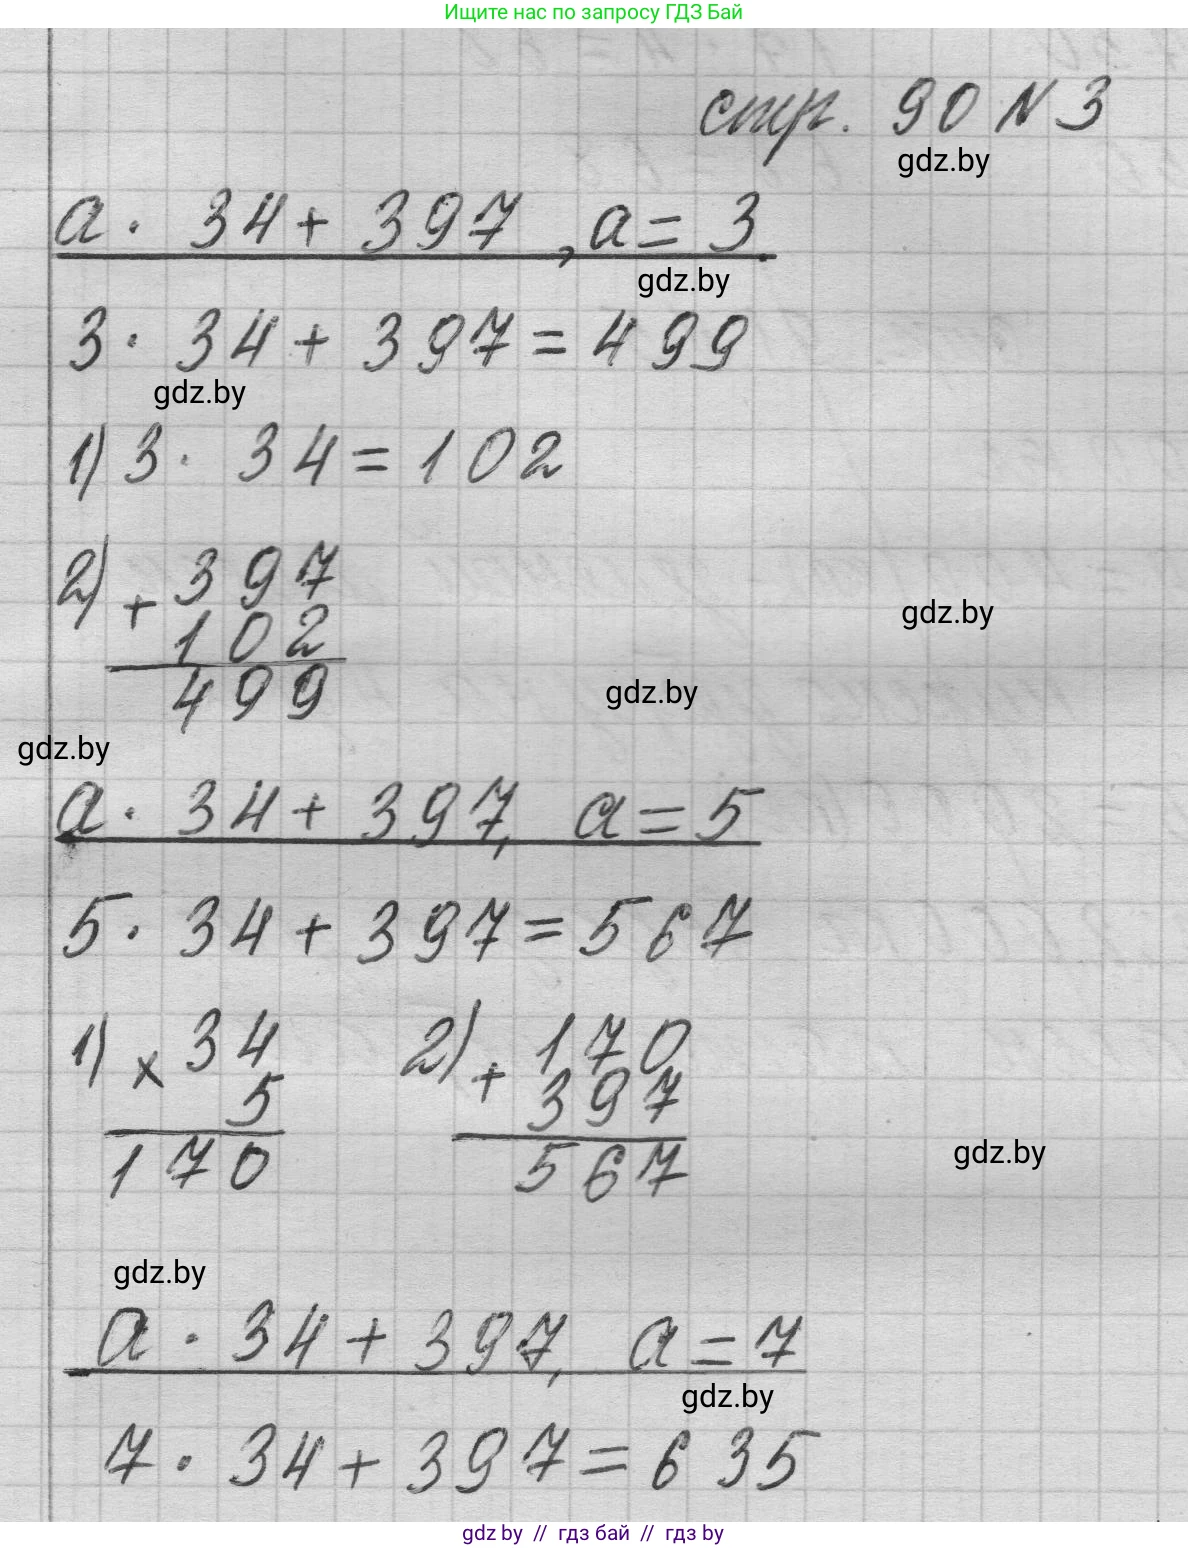 Ищите нас по запросу ГДЗ Бай
стр. 90 N 3
gdz.by
a · 34 + 397, a = 3.
gdz.by
3 · 34 + 397 = 499
gdz.by
1) 3 · 34 = 102
2) + 397
102
499
gdz.by
gdz.by
gdz.by
a · 34 + 397, a = 5
5 · 34 + 397 = 567
1) × 34 2) + 170
5 397
170 567
gdz.by
gdz.by
a · 34 + 397, a = 7
gdz.by
7 · 34 + 397 = 635
gdz by // гдз бай // гдз by